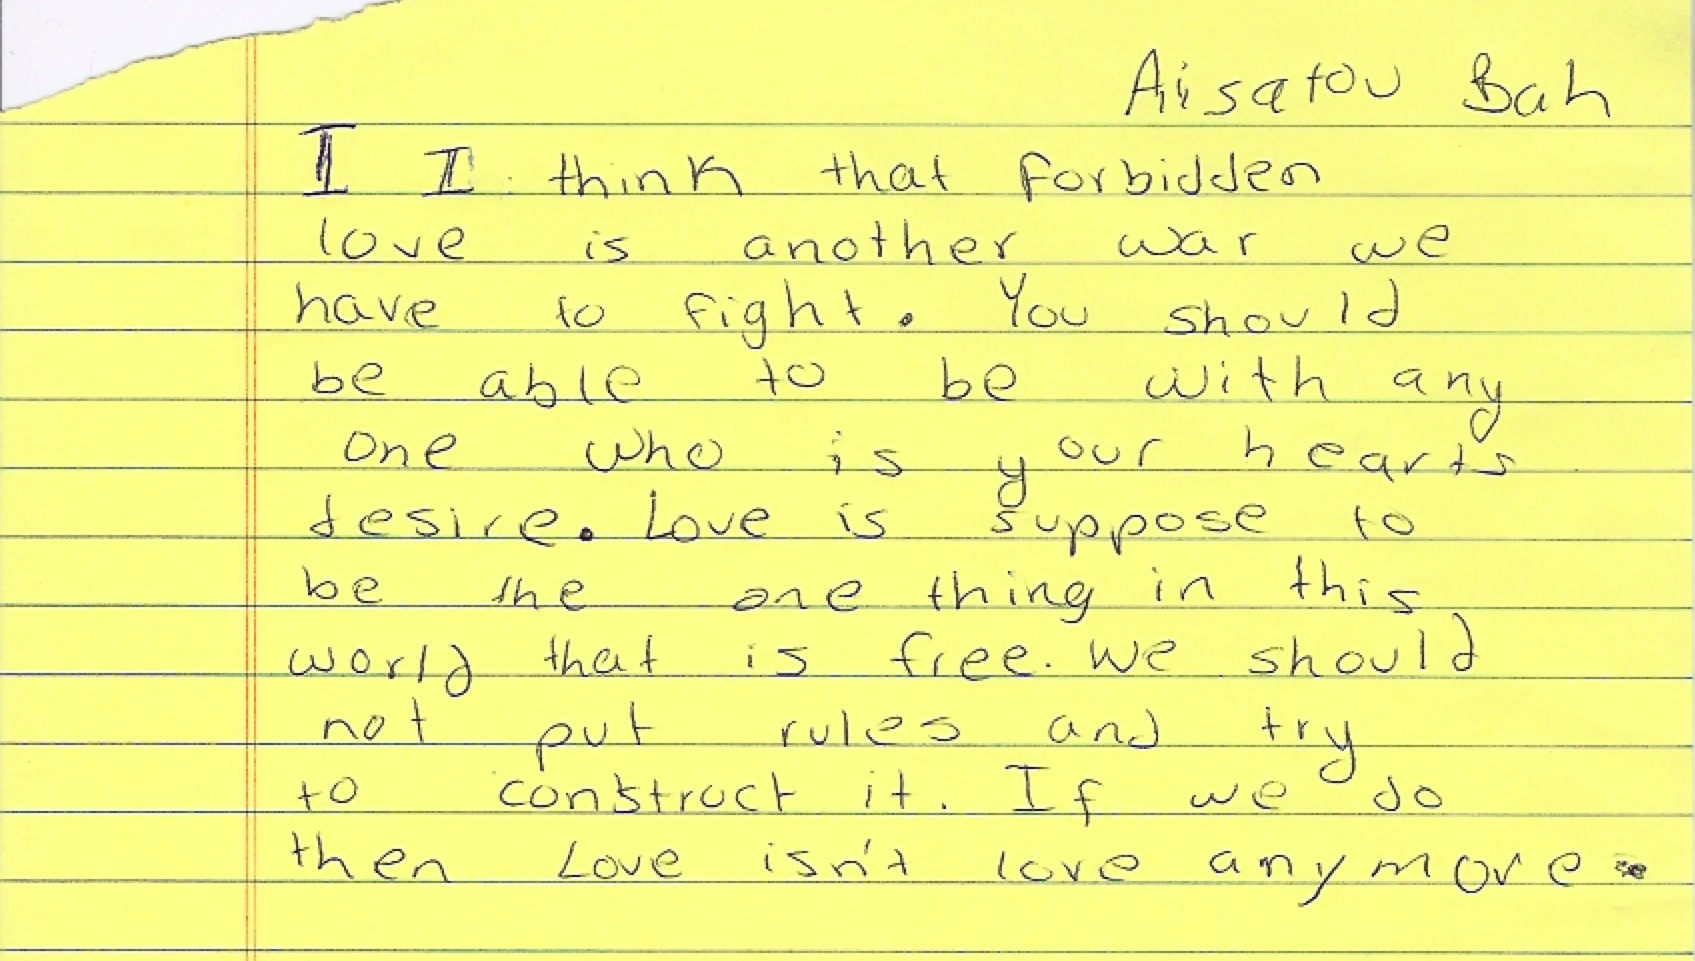 Aisatou Bah
I I think that forbidden
love is another war we
have to fight. You should
be able to be with any
one who is your hearts
desire. Love is suppose to
be the one thing in this
world that is free. We should
not put rules and try
to construct it. If we do
then Love isn't love anymore.